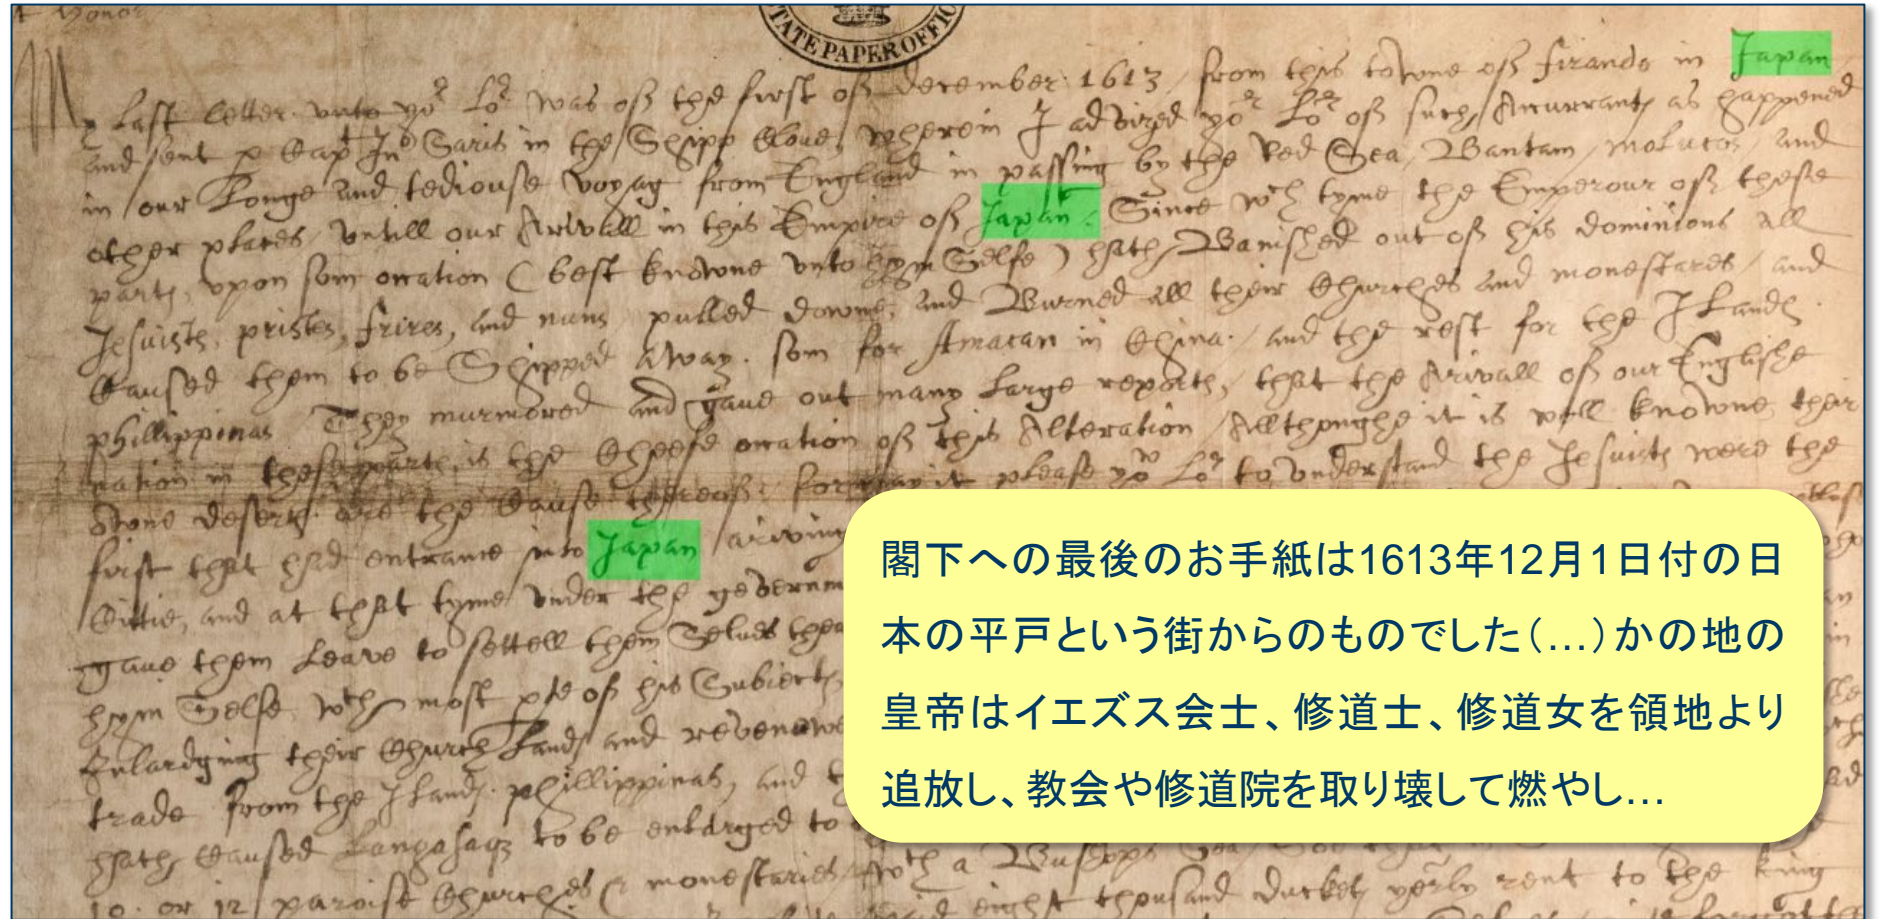 t Honor
STATE PAPER OFFIC
My Last Letter unto yor Lor was of the first of december 1613 / from this towne of firando in Japan
and sent p Capt Jno Saris in the Shipp Clove, wherein I advized yor Lor of such Accurrants as happened
in our Longe and tediouse voyag from England in passing by the Red Sea, Bantam, molucos, and
other places, untill our Arivall in this Empire of Japan. Since wch tyme the Emperour of these
parts, upon som occation (best knowne unto hym Selfe) hath Banished out of his dominions all
Jesuists, pristes, frires, and nuns pulled downe, and Burned all their Churches and monestares, and
Caused them to be Shipped Away. som for Amacan in China. and the rest for the Ilands
phillippinas They murmored and gave out many Large reports, that the Arivall of our Englishe
nation in these parts, is the Cheefe occation of this Alteration / Allthoughe it is well knowne their
owne deserts are the Cause thereof. for may it please yow Lor to understand the Jesuists were the
first that had entrance into Japan / ariving
Cittie, and at that tyme under the governm
gave them Leave to settell them Selves thea
hym Selfe, wth most pte of his Subiects
Enlardging their Church Lands and revenewe
trade from the Ilands phillippinas, and
hath Caused Langasaqz to be enlarged to
10. or 12 paroise Churches monestaries wth a Busshopps Sea
eight thousand duckets yerly rent to the King
閣下への最後のお手紙は1613年12月1日付の日
本の平戸という街からのものでした(…)かの地の
皇帝はイエズス会士、修道士、修道女を領地より
追放し、教会や修道院を取り壊して燃やし…